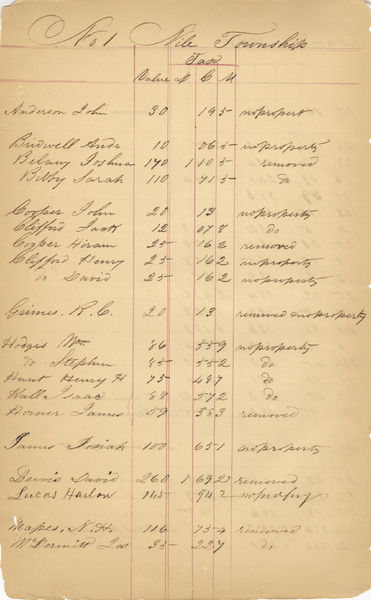 No 1 Nile Township
Tax
Value $ C M
Anderson John 30 19 5 no propert
Bridwell Andr 10 06 5 no property
Belany Joshua 170 1 10 5 removed
Bilby Sarah 110 71 5 do
Cooper John 20 13 no property
Clifford Jack 12 07 8 do
Cooper Hiram 25 16 2 removed
Clifford Henry 25 16 2 no property
do David 25 16 2 no property
Grimes R. C. 20 13 removed & no property
Hodges Wm 86 55 9 no property
do Stephen 85 55 2 do
Hunt Henry H 75 48 7 do
Hall Isaac 88 57 2 do
Horner James 59 38 3 removed
James Josiah 100 65 1 no property
Lewis David 260 1 69 2 removed
Lucas Harlow 145 94 2 no propty
Mapes, N. H. 116 75 4 removed
McDermitt Jas 35 22 7 do